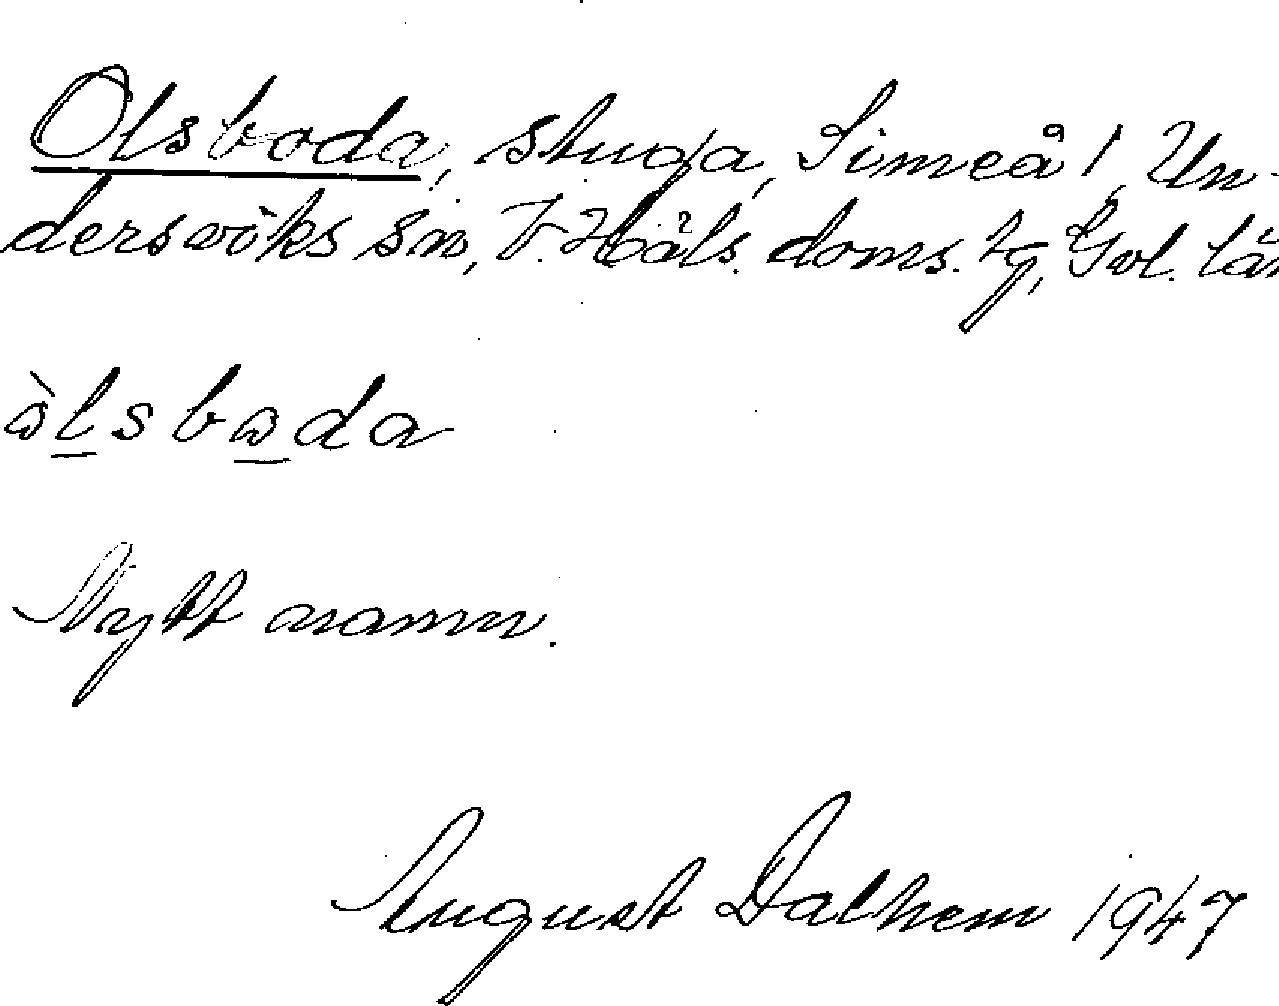 Olsboda, stuga, Simeå 1, Un-
dersviks sn, V. Häls. doms. tg, Gvl. län
òlsboda
Nytt namn.
August Dalhem 1947